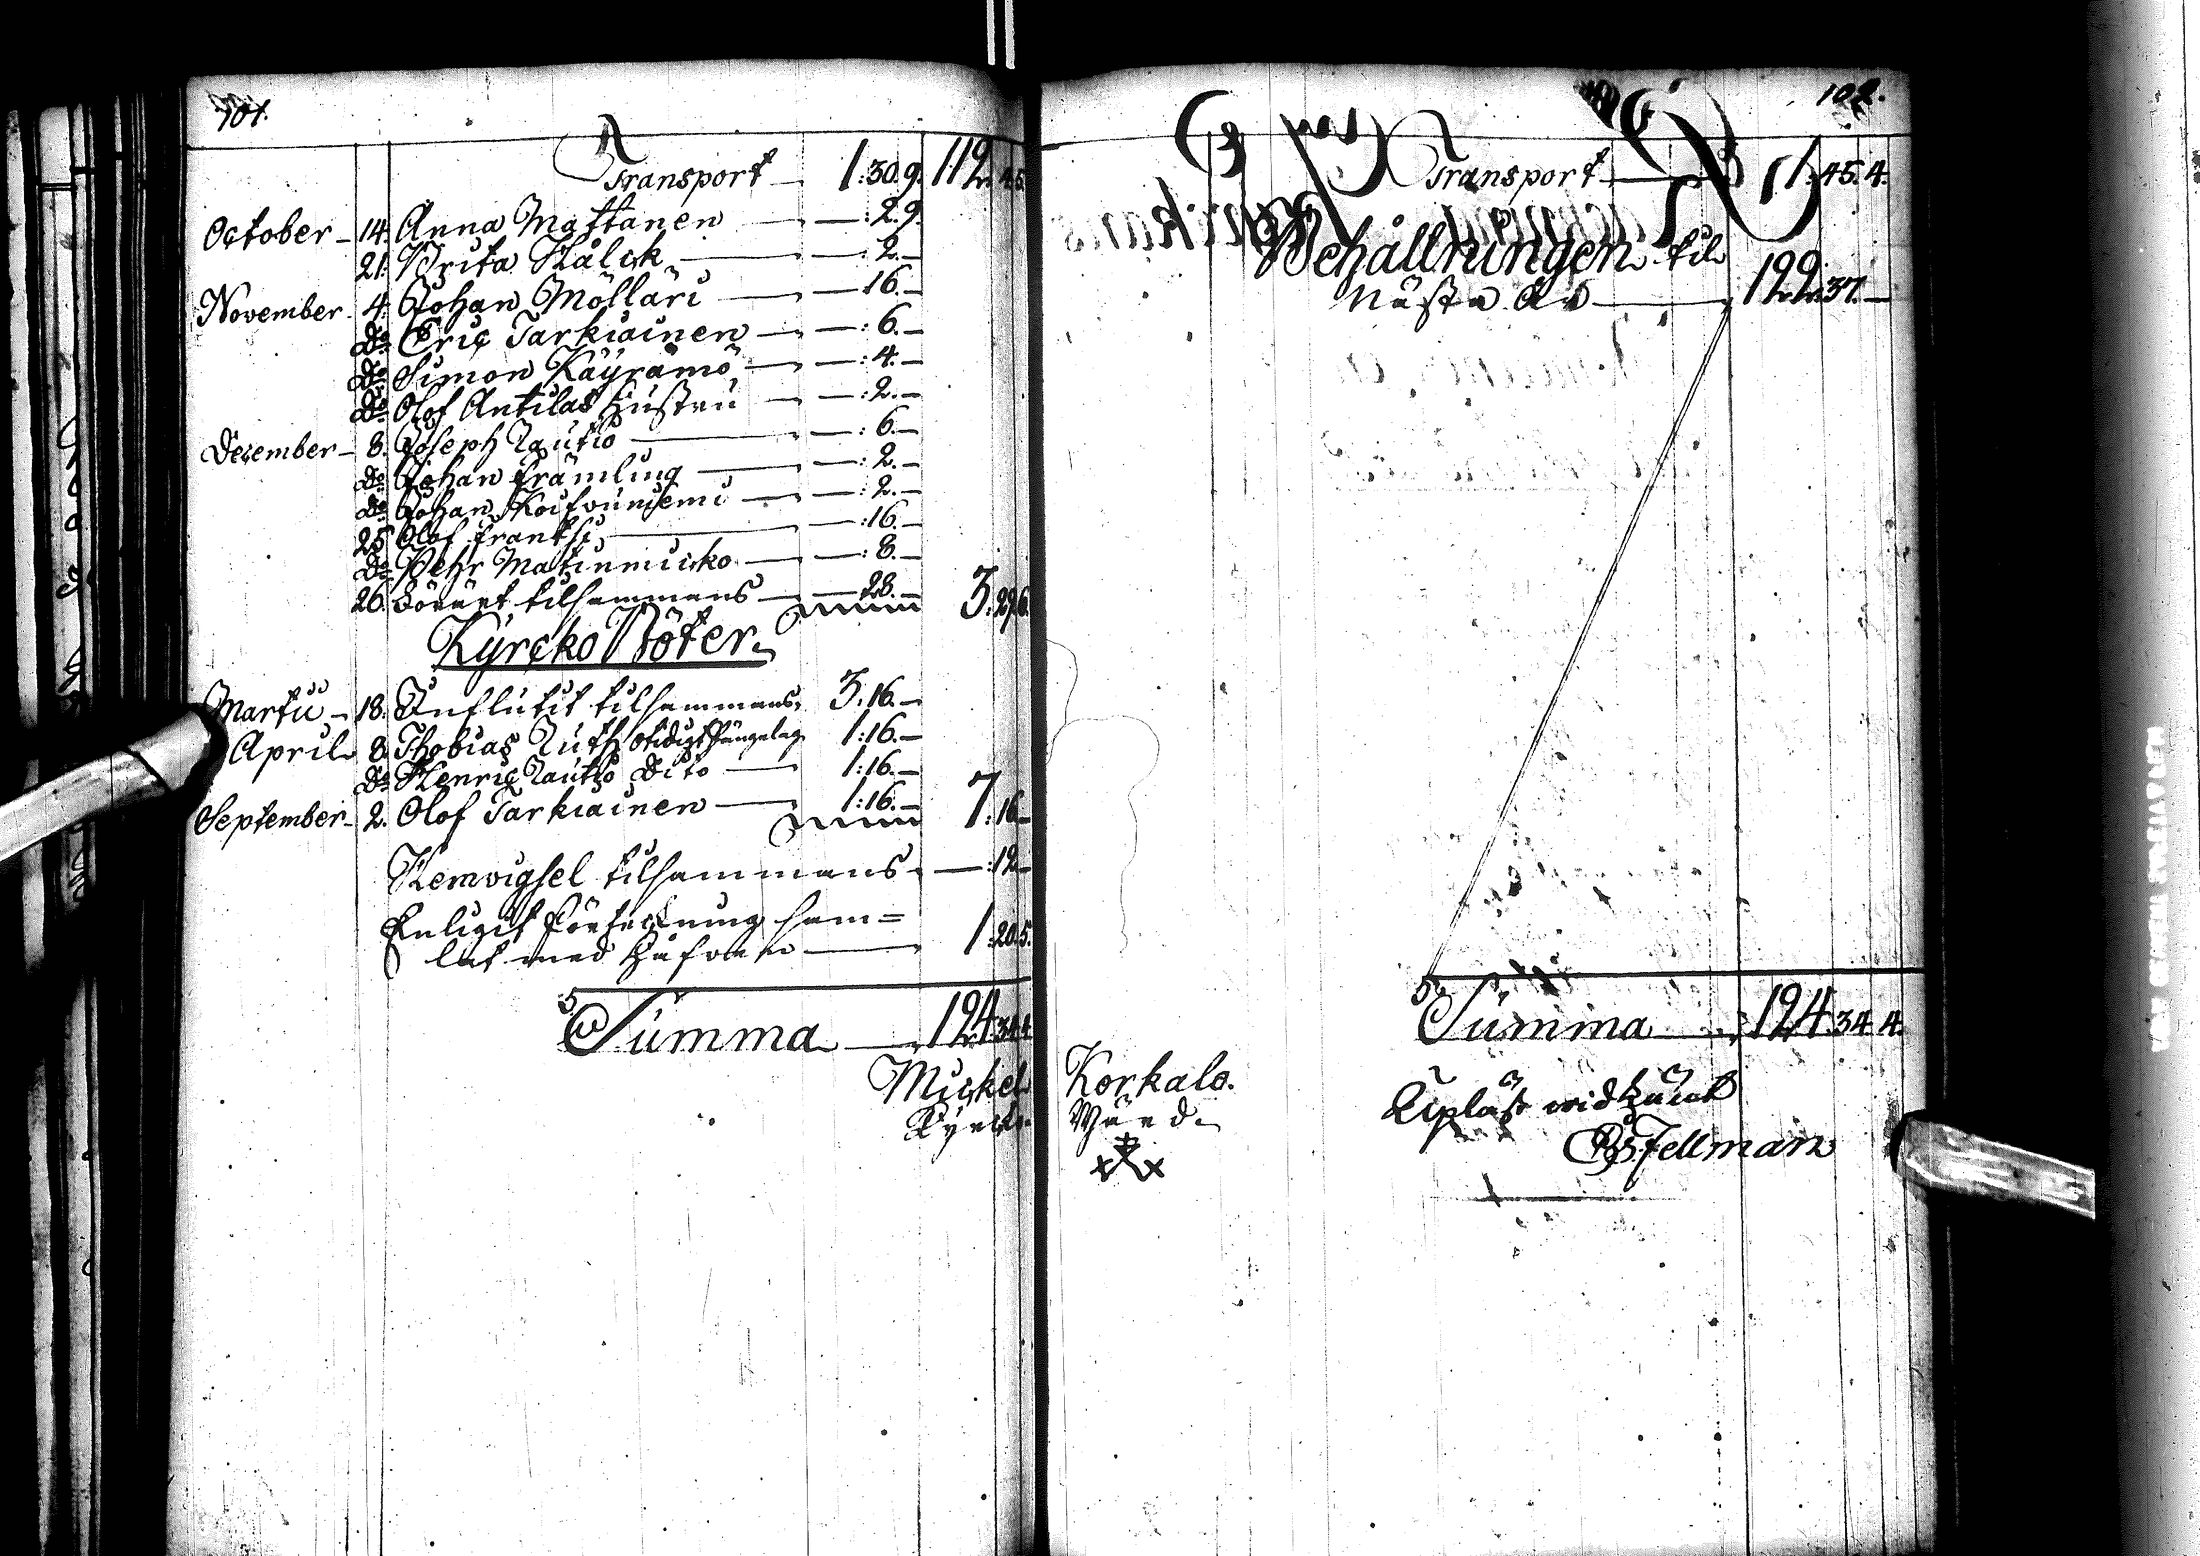 101.
Transport 1:30.9. 112. 4.5.
October 14. Anna Mattanen —:2.9.
21. Brita Stålick —:2.—
November 4. Johan Mölläri —:16.—
Do Eric Tarkiainen —:6.—
Do Simon Käyrämö —:4.—
Do Olof Antilas Hustru —:2.—
December 8. Joseph Rautio —:6.—
Do Johan Främling —:2.—
Do Johan Koifvuniemi —:2.—
25. Olof Frantsi —:16.—
Do Pehr Matinmicko —:8.—
26. tilsammans —:28.— 3:29.6.
Kyrcko Böter.
Martii 18. Influtit tilsammans 3.16.—
April 8. Thobias Ruth otidigt Sängelag 1:16.—
Do Henric Rautio Dito 1:16.—
September 2. Olof Tarkiainen 1:16.— 7:16.—
Hemvigsel tilsammans —:12.—
Enligit Förtekning sam=
lat med Håfven 1:20.5.
Summa 124.34.4.
Mickel
Kyrcko
102.
Transport 1:45.4.
Behållningen til
nästa År 122:37.—
Summa 124.34.4.
Korkalo.
Värd.
Upläst wid
Es. Fellman